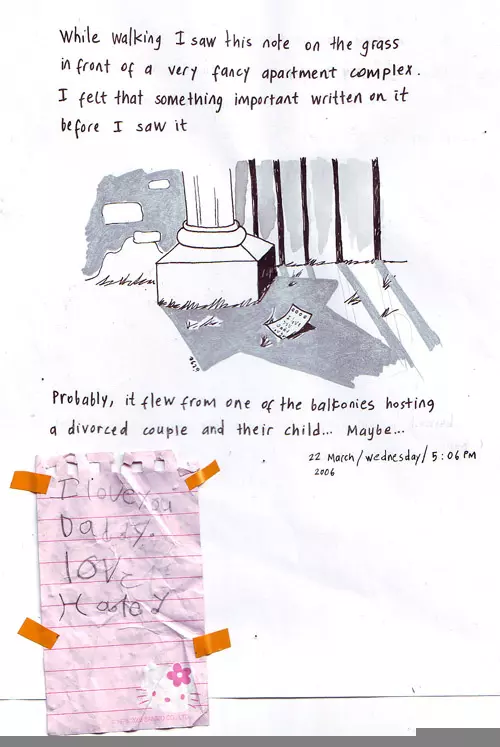 While walking I saw this note on the grass
in front of a very fancy apartment complex.
I felt that something important written on it
before I saw it
Probably, it flew from one of the balkonies hosting
a divorced couple and their child... Maybe...
22 March/wednesday/5:06 PM
2006
I love you
Daddy.
love